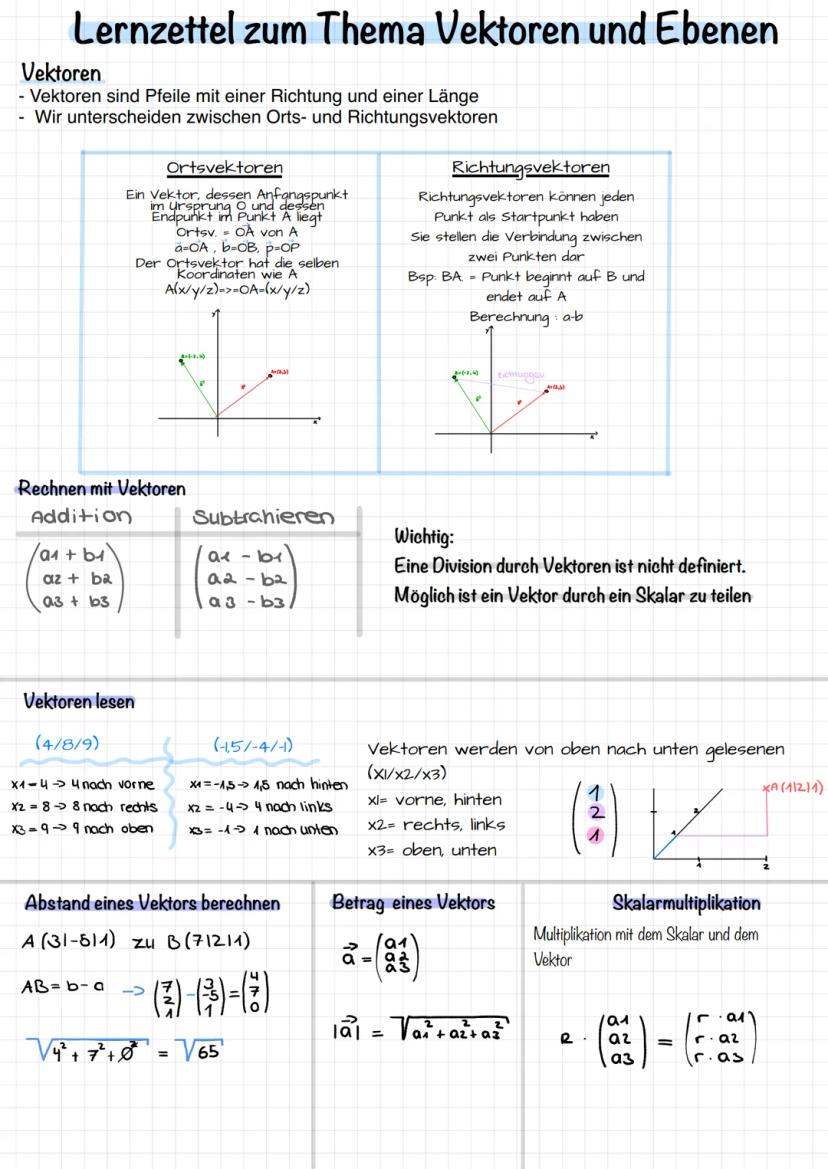 Lernzettel zum Thema Vektoren und Ebenen
Vektoren
- Vektoren sind Pfeile mit einer Richtung und einer Länge
- Wir unterscheiden zwischen Orts- und Richtungsvektoren
Ortsvektoren
Ein Vektor, dessen Anfangspunkt
im Ursprung O und dessen
Endpunkt im Punkt A liegt
Ortsv. = OA von A
a=OA , b=OB, p=OP
Der Ortsvektor hat die selben
Koordinaten wie A
A(x/y/z)=>=OA=(x/y/z)
y
x
Richtungsvektoren
Richtungsvektoren können jeden
Punkt als Startpunkt haben
Sie stellen die Verbindung zwischen
zwei Punkten dar
Bsp: BA = Punkt beginnt auf B und
endet auf A
Berechnung : a-b
y
x
Rechnen mit Vektoren
Addition
a1 + b1
a2 + b2
a3 + b3
Subtrahieren
a1 - b1
a2 - b2
a3 - b3
Wichtig:
Eine Division durch Vektoren ist nicht definiert.
Möglich ist ein Vektor durch ein Skalar zu teilen
Vektoren lesen
(4/8/9)
x1=4 → 4 nach vorne
x2 = 8 → 8 nach rechts
x3 = 9 → 9 nach oben
(-1,5/-4/-1)
x1=-1,5 → 1,5 nach hinten
x2 = -4 → 4 nach links
x3= -1 → 1 nach unten
Vektoren werden von oben nach unten gelesenen
(x1/x2/x3)
x1= vorne, hinten
x2= rechts, links
x3= oben, unten
1
2
1
xA (1|2|1)
2
1
1
2
Abstand eines Vektors berechnen
A (3|-5|1) zu B (7|2|1)
AB= b-a → (7 2 1) - (3 -5 1) = (4 7 0)
√4² + 7² + 0² = √65
Betrag eines Vektors
a⃗ = (a1 a2 a3)
|a⃗| = √a1² + a2² + a3²
Skalarmultiplikation
Multiplikation mit dem Skalar und dem
Vektor
R · (a1 a2 a3) = (r · a1 r · a2 r · a3)